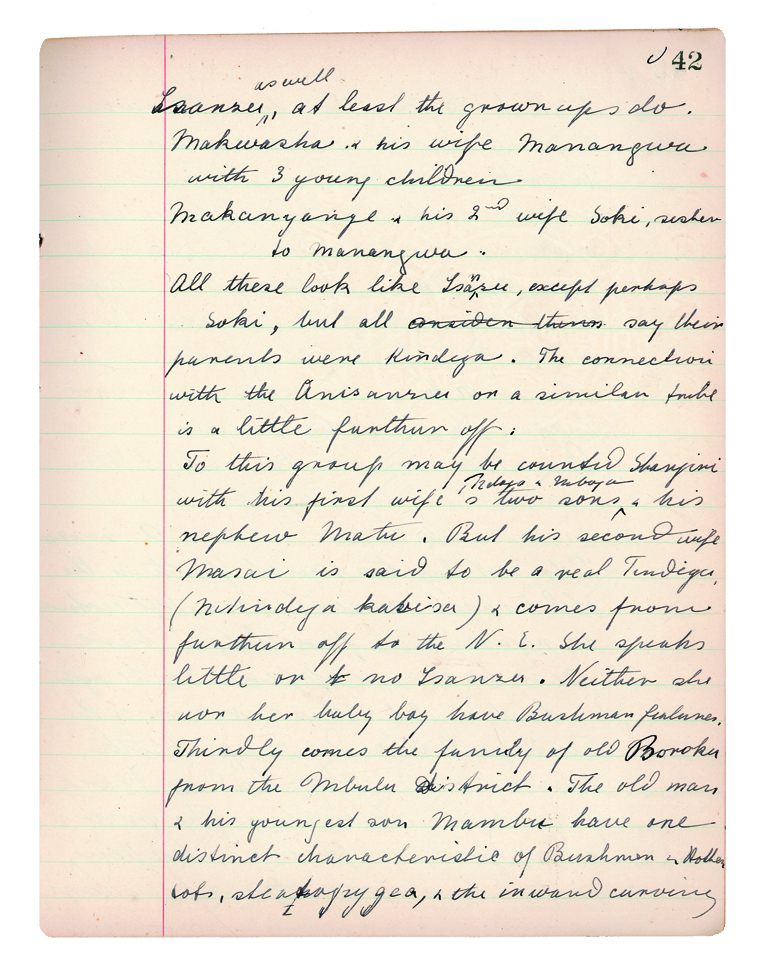 42
as well
Isanzu, at least the grown ups do.
Makwasha & his wife Manangwa
with 3 young children
Makanyange & his 2nd wife Soki, sister
to Manangwa.
All these look like Isanzu, except perhaps
Soki, but all consider them say their
parents were Kindega. The connection
with the Anisanzu or a similar tribe
is a little further off.
To this group may be counted Shanjini
Ndaya & Mbaya
with his first wife's two sons & his
nephew Matu. But his second wife
Masai is said to be a real Tindiga,
(Mtindega kabisa) & comes from
further off to the N. E. She speaks
little or no Isanzu. Neither she
nor her baby boy have Bushman features.
Thirdly comes the family of old Boroku
from the Mbulu District. The old man
& his youngest son Mambu have one
distinct characteristic of Bushmen & Hotten
tots, steatopygea, & the inward curving